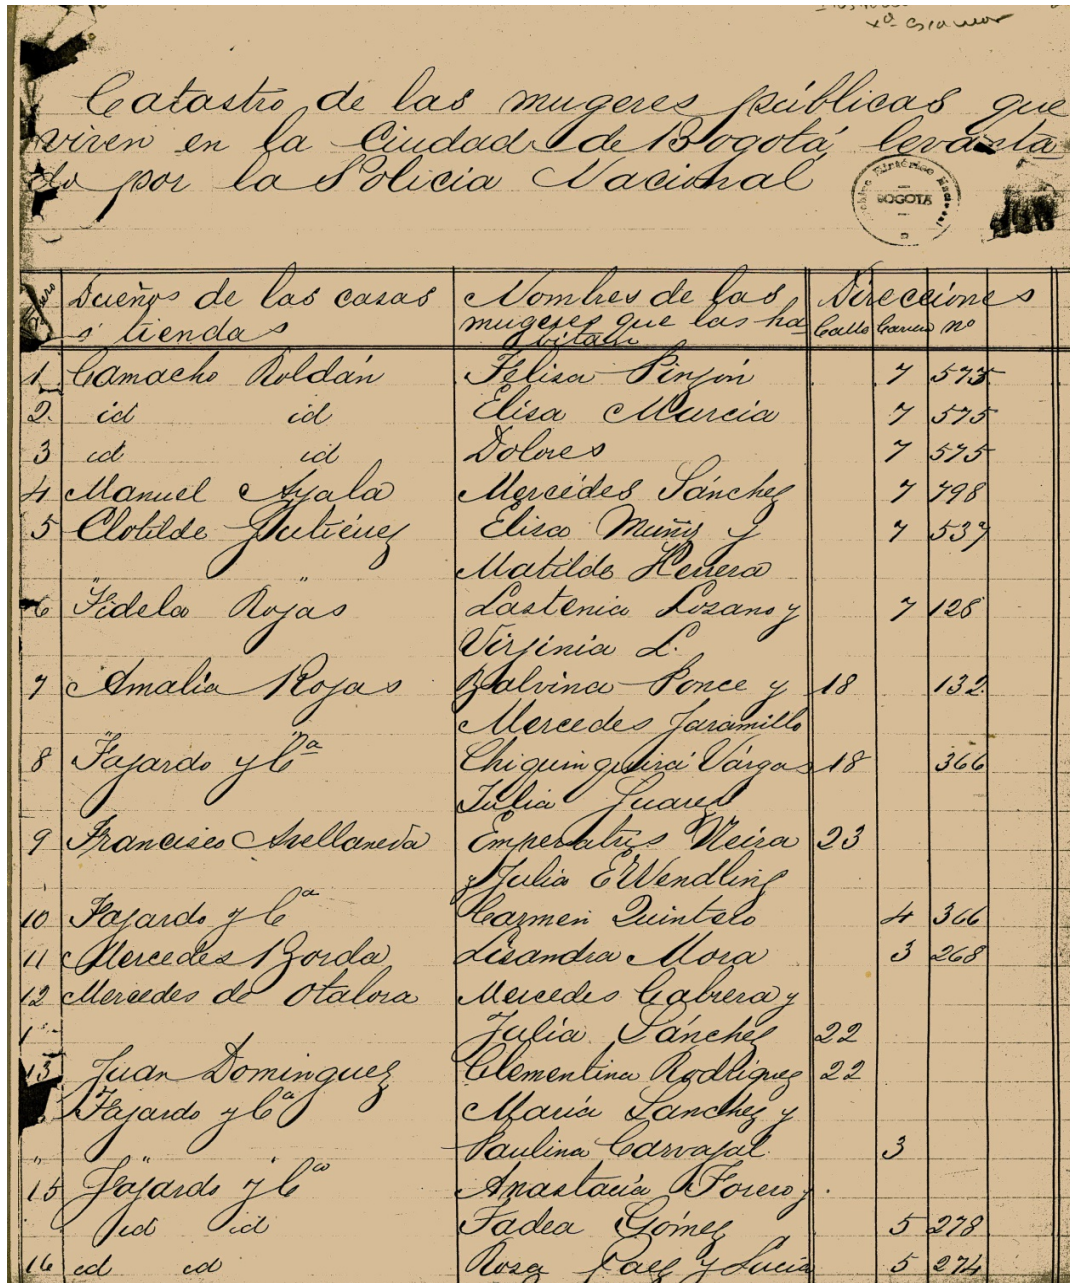 Catastro de las mugeres públicas que
viven en la Ciudad de Bogotá, levanta
do por la Policia Nacional
Archivo Histórico Nacional
BOGOTA
Dueños de las casas Nombres de las Direcciones
ó tiendas mugeres que las ha Calle Carrera nº
bitan
1 Camacho Roldán Felisa Pinzón 7 575
2 id id Elisa Murcia 7 575
3 id id Dolores 7 575
4 Manuel Ayala Mercédes Sánchez 7 798
5 Clotilde Gutiérrez Elisa Muñiz y 7 537
Matilde Herrera
6 Fidela Rojas Lastenia Lozano y 7 128
Virjinia L.
7 Amalia Rojas Balvina Ponce y 18 132
Mercedes Jaramillo
8 Fajardo y Cª Chiquinquirá Várgas 18 366
Julia Juarez
9 Francisco Avellaneda Emperatris Neira 23
y Julia
10 Fajardo y Cª Carmen Quintero 4 366
11 Mercedes Borda Lisandra Mora 3 268
12 Mercedes de Otalora Mercedes Cabrera y
Julia Sánchez 22
13 Juan Dominguez Clementina Rodriguez 22
Fajardo y Cª María Sanchez y
Paulina Carvajal 3
15 Fajardo y Cª Anastacia Forero y
id id Tadea Gómez 5 278
16 id id Rosa Paez y Lucia 5 274